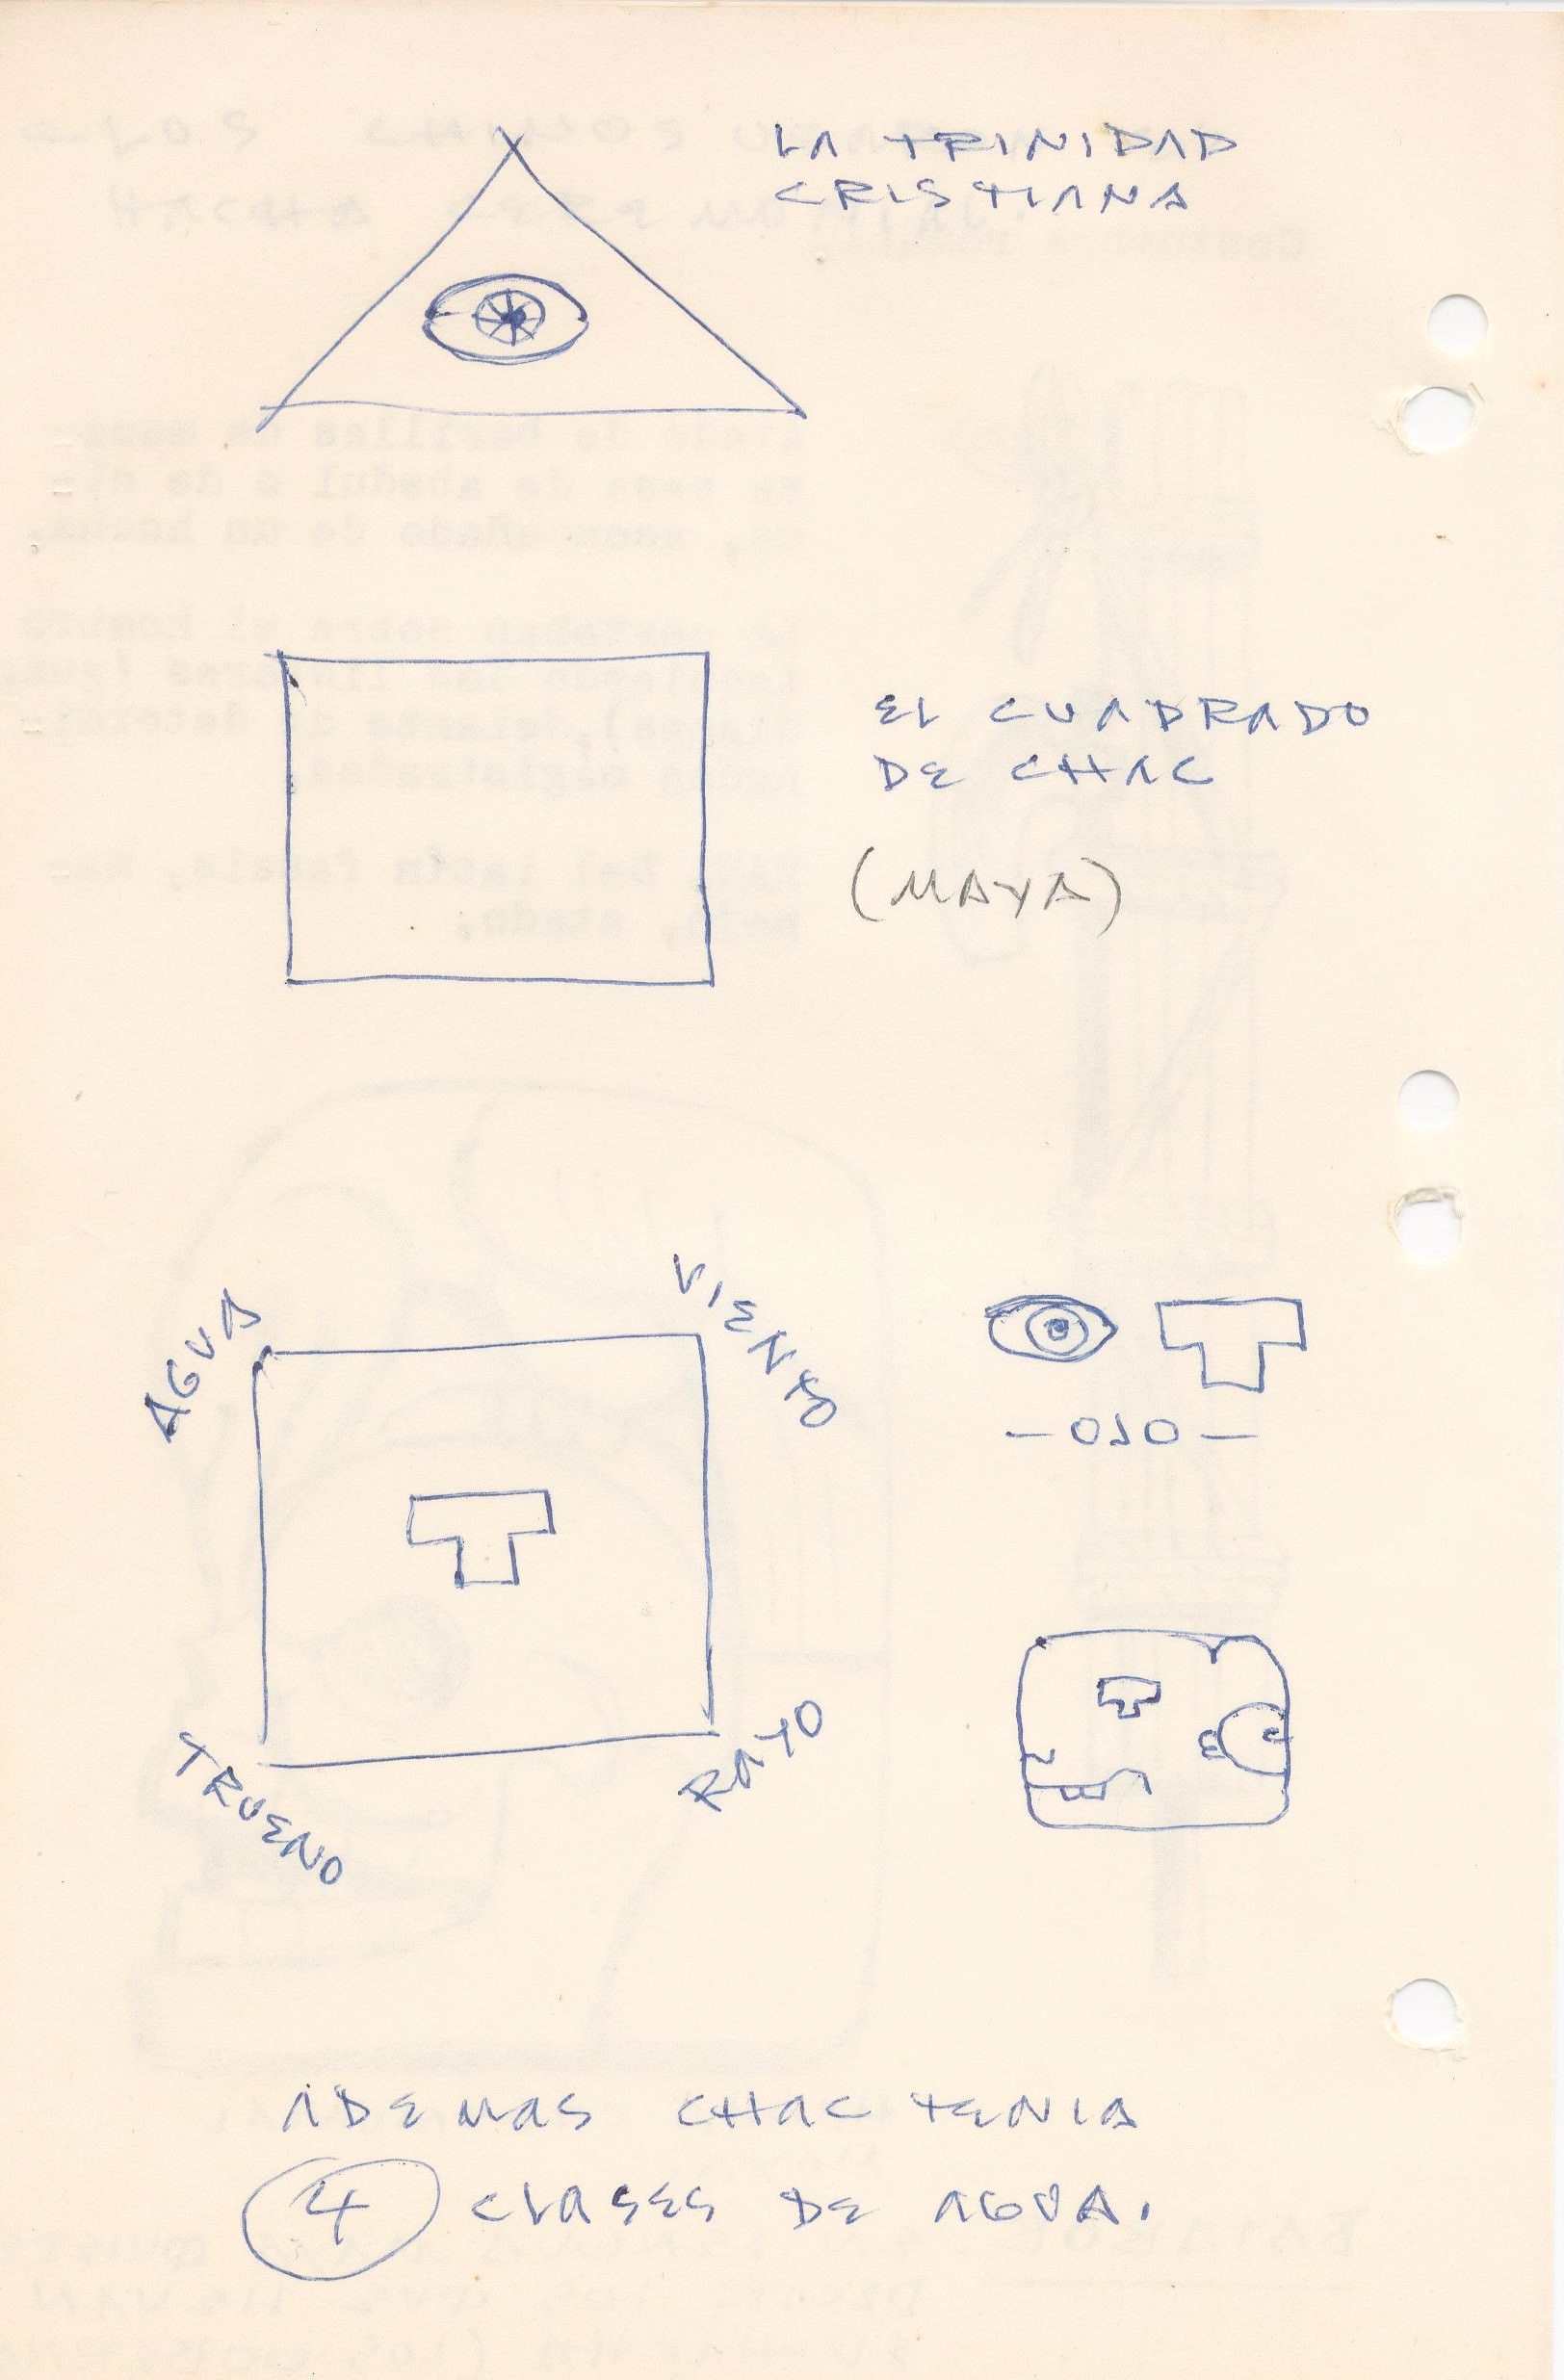 LA TRINIDAD
CRISTIANA
EL CUADRADO
DE CHAC
(MAYA)
AGUA
VIENTO
- OJO -
TRUENO
RAYO
ADEMAS CHAC TENIA
4 CLASES DE AGUA.